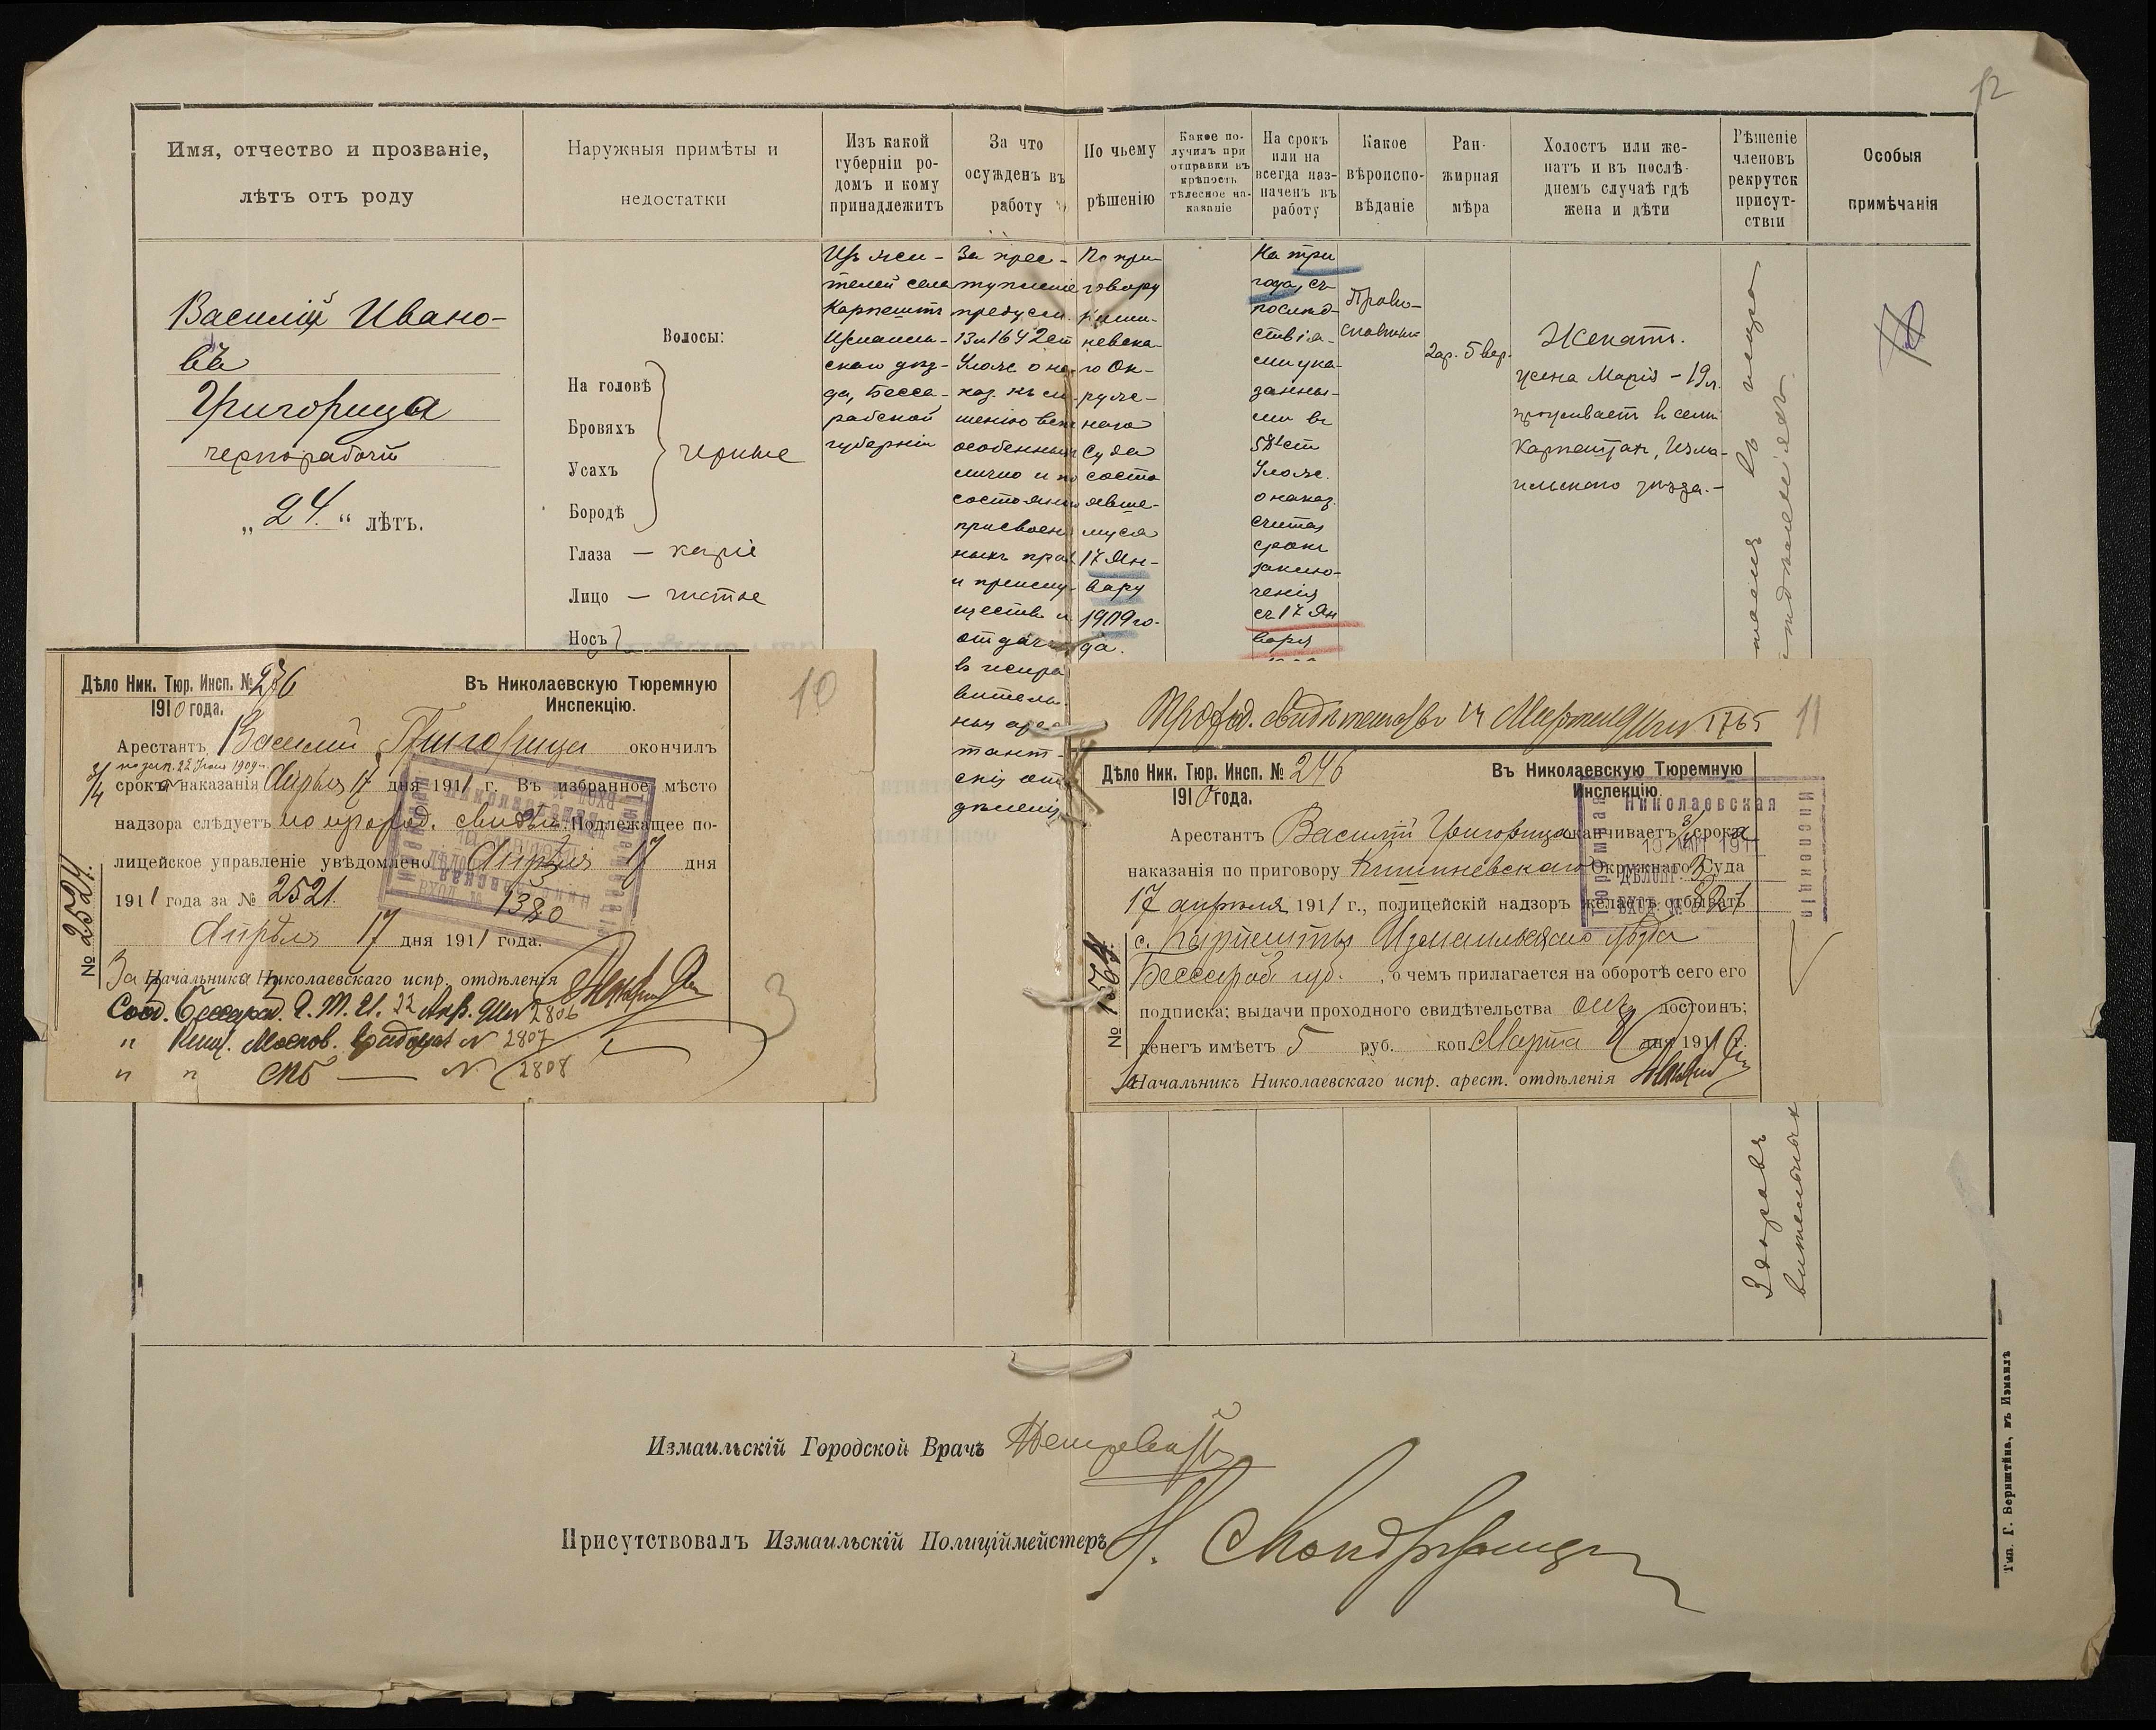 12
Имя, отчество и прозваніе,
лѣтъ отъ роду
Наружныя примѣты и
недостатки
Изъ какой
губерніи ро-
домъ и кому
принадлежитъ
За что
осужденъ въ
работу
По чьему
рѣшенію
Какое по-
лучилъ при
отправки въ
крѣпость
тѣлесное на-
казаніе
На срокъ
или на
всегда наз-
наченъ въ
работу
Какое
вѣроиспо-
вѣданіе
Ран-
жирная
мѣра
Холостъ или же-
натъ и въ послѣ-
днемъ случаѣ гдѣ
жена и дѣти
Рѣшеніе
членовъ
рекрутск
присут-
ствіи
Особыя
примѣчанія
Василій Ивано-
въ
Григорица
чернорабочій
„24.“ лѣтъ.
Волосы:
На головѣ
Бровяхъ
Усахъ
Бородѣ
черные
Глаза — каріе
Лицо — чистое
Носъ
Изъ жи-
телей села
Карпештъ
Измаиль-
скаго уѣз-
да, Бесса-
рабской
губерніи
За прес-
тупленіе
предусм.
13 и 1642 ст
Улож. о на-
каз. къ ли-
шенію всех
особенныхъ
лично и по
состоянію
присвоен
ныхъ прав
и преиму-
ществъ и
отдачѣ
въ испра
витель-
ныя арес
тант-
скія от
дѣленія
По при-
говору
Киши-
невска-
го Ок-
руж-
наго
Суда
состо
явше-
муся
17 Ян-
варя
1909 го-
да.
На три
года, съ
послѣд-
ствія-
ми ука-
занны-
ми въ
58¹ ст
Улож.
о наказ.
считая
срокъ
заклю-
ченія
съ 17 Ян
варя
Право-
славный
2 ар. 5 вер.
Женатъ.
жена Марія – 19 л.
проживаетъ в селѣ
Карпештах, Изма-
ильскаго уѣзда.-
Здоровъ
вительныхъ
Дѣло Ник. Тюр. Инсп. № 246
1910 года.
Въ Николаевскую Тюремную
Инспекцію.
10
Арестантъ Василій Григорица окончилъ
3/4 срока наказанія Апрѣля 17 дня 1911 г. Въ избранное мѣсто
надзора слѣдуетъ по проход. свидѣт. Подлежащее по-
лицейское управленіе увѣдомлено Апрѣля 17 дня
1911 года за № 2521.
1380
Апрѣля 17 дня 1911 года.
№ 2524.
За Начальника Николаевскаго испр. отдѣленія
Сооб. Бессараб. Г. Т. И. 22 Апр. 911 № 2806
" Канц. Москов. Градонач № 2807
" " СПб — № 2808
3
Проход. свидѣтельство 14 Марта 911 № 1765
11
Дѣло Ник. Тюр. Инсп. № 246
1910 года.
Въ Николаевскую Тюремную
Инспекцію.
Николаевская
Тюремная
Инспекція
Арестантъ Василій Григорица оканчиваетъ 3/4 срока
наказанія по приговору Кишиневскаго Окружнаго Суда
17 апрѣля 1911 г., полицейскій надзоръ желаетъ отбывать
с. Карпешты Измаильскаго уѣзда
Бессараб. губ. , о чемъ прилагается на оборотѣ сего его
подписка; выдачи проходного свидѣтельства онъ достоинъ;
денегъ имѣетъ 5 руб. коп. Марта 9 дня 1911 г.
№ 1564.
За Начальникъ Николаевскаго испр. арест. отдѣленія
Измаильскій Городской Врачъ
Присутствовалъ Измаильскій Полиціймейстеръ
Тип. Г. Бернштейна, въ Измаилѣ